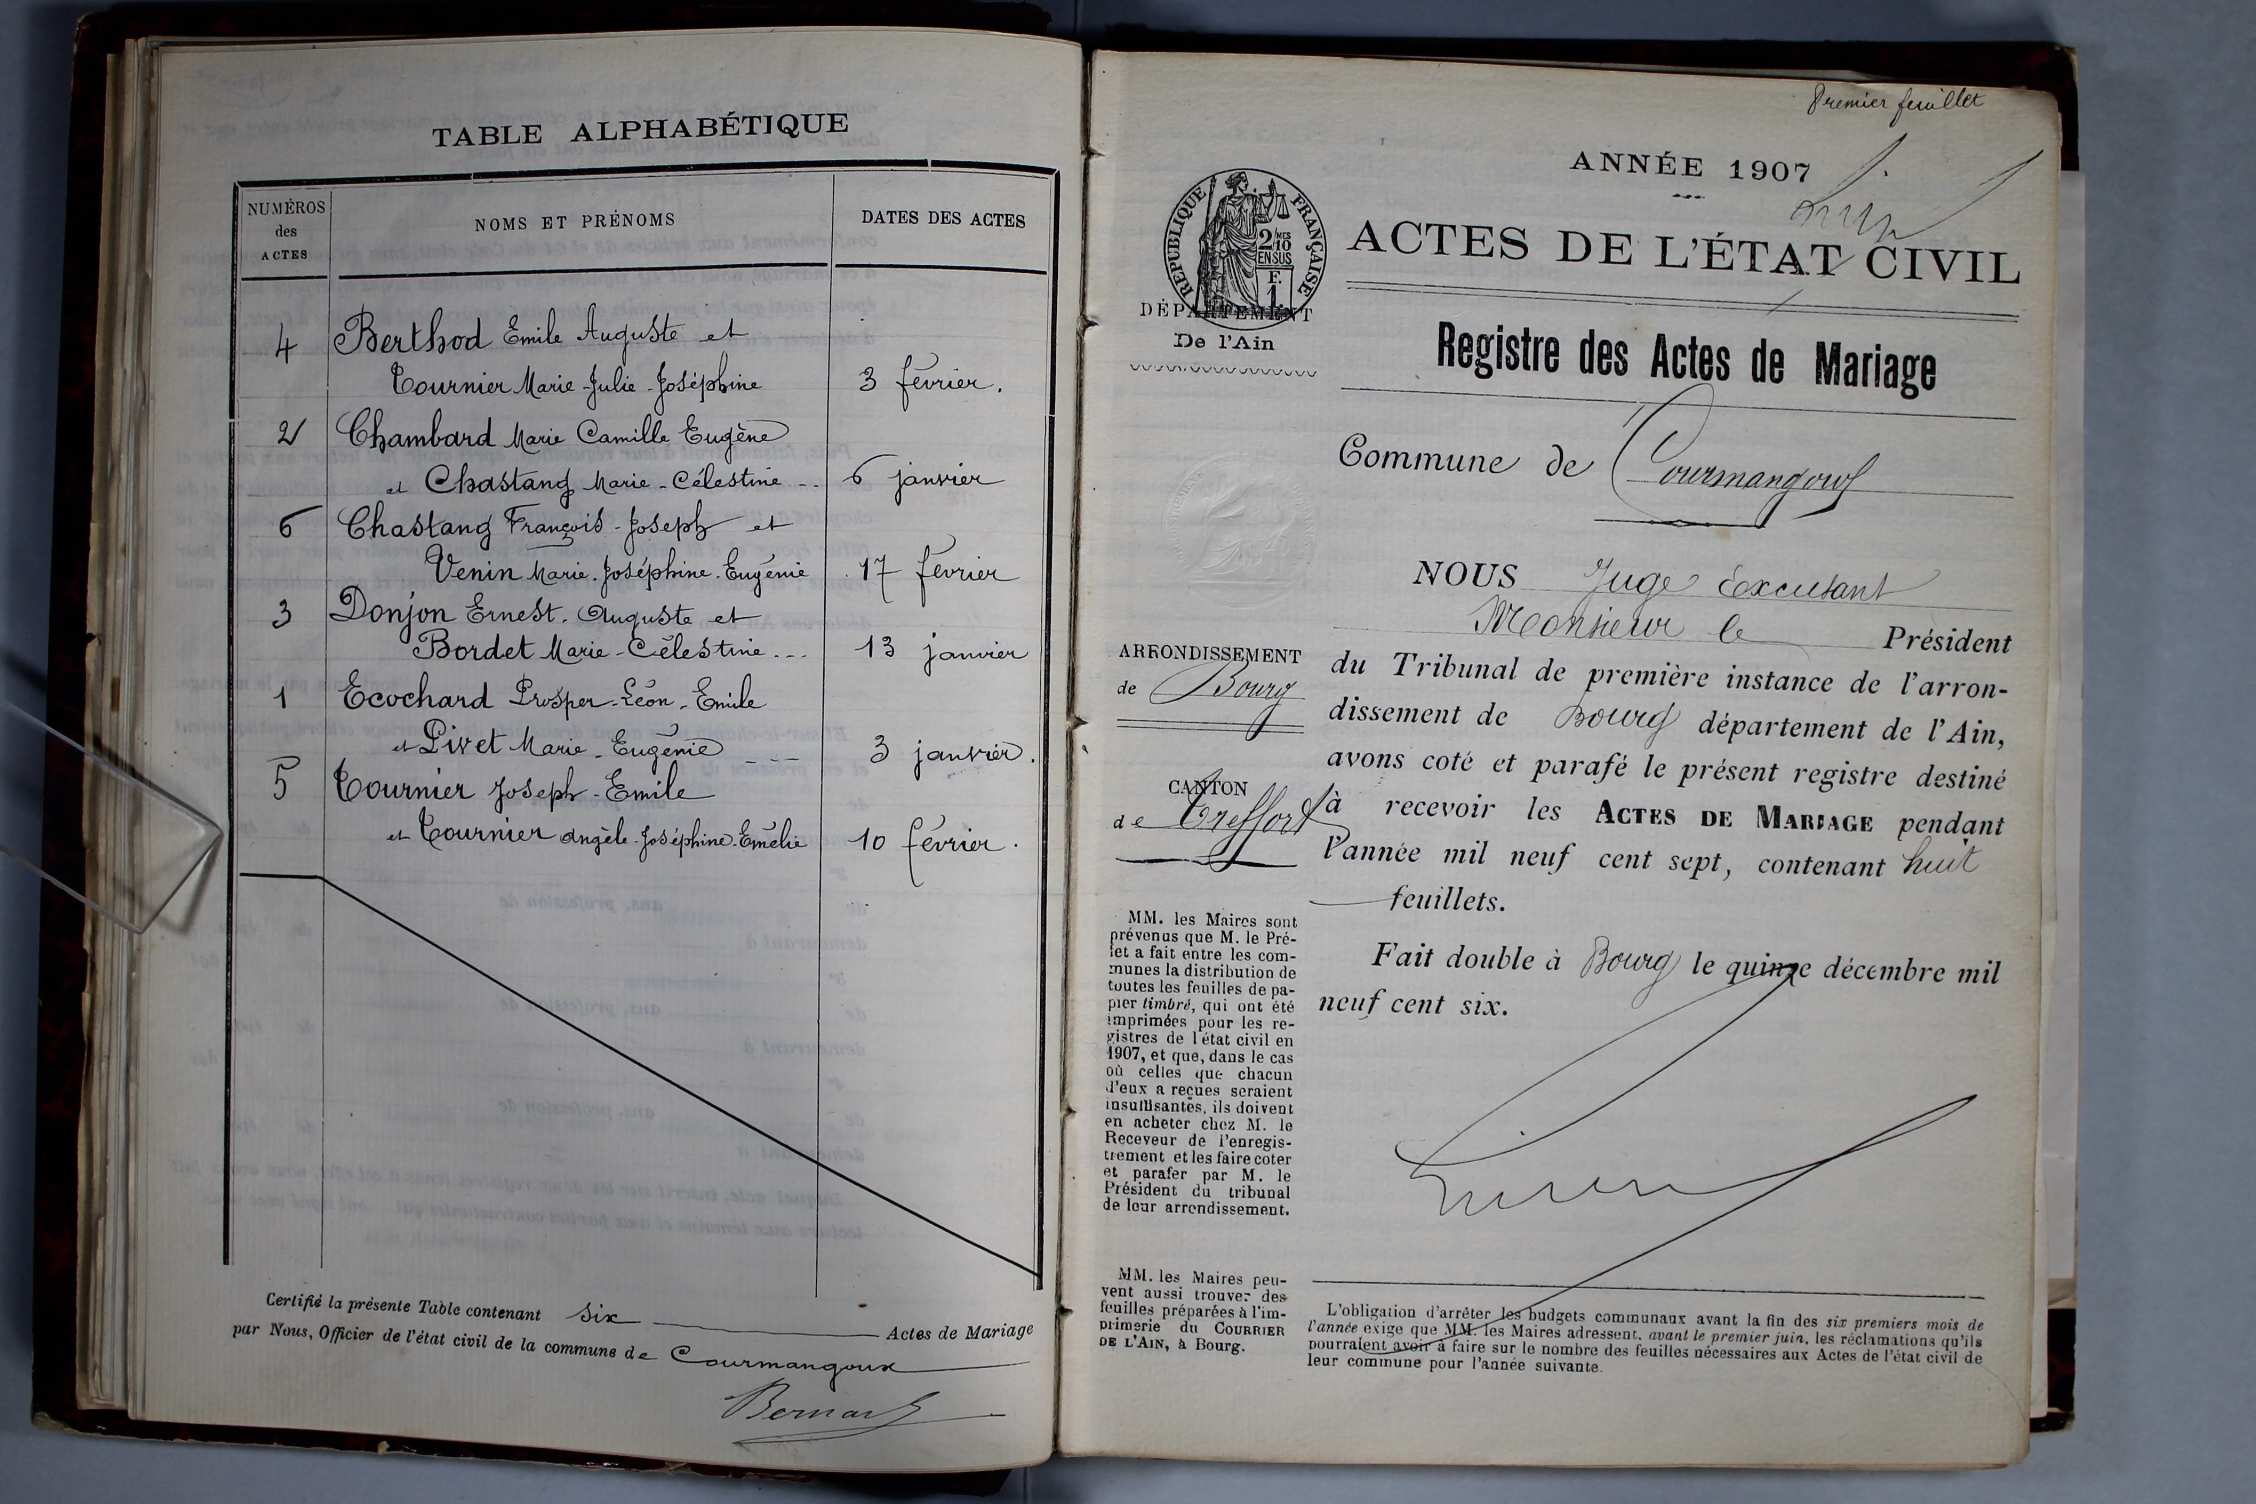 TABLE ALPHABÉTIQUE
NUMÉROS
des
ACTES
NOMS ET PRÉNOMS
DATES DES ACTES
4 Berthod Emile Auguste et
Tournier Marie-Julie-Joséphine 3 février.
2 Chambard Marie Camille Eugène
et Chastang Marie-Célestine -- 6 janvier
6 Chastang François-Joseph et
Venin Marie-Joséphine-Eugénie 17 février
3 Donjon Ernest-Auguste et
Bordet Marie-Célestine --- 13 janvier
1 Ecochard Prosper-Léon-Emile
et Pivet Marie-Eugénie --- 3 janvier.
5 Tournier Joseph-Emile
et Tournier Angèle-Joséphine-Emélie 10 février.
Certifié la présente Table contenant six Actes de Mariage
par Nous, Officier de l'état civil de la commune de Courmangoux
Bernard
Premier feuillet
ANNÉE 1907
RÉPUBLIQUE FRANÇAISE
2/10
MES
EN SUS
F.
1.
ACTES DE L'ÉTAT CIVIL
DÉPARTEMENT
De l'Ain
Registre des Actes de Mariage
Commune de Courmangoux
NOUS Juge Excusant
Monsieur le Président
du Tribunal de première instance de l'arron-
dissement de Bourg département de l'Ain,
avons coté et parafé le présent registre destiné
à recevoir les ACTES DE MARIAGE pendant
l'année mil neuf cent sept, contenant huit
feuillets.
Fait double à Bourg le quinze décembre mil
neuf cent six.
ARRONDISSEMENT
de Bourg
CANTON
de Treffort
MM. les Maires sont
prévenus que M. le Pré-
fet a fait entre les com-
munes la distribution de
toutes les feuilles de pa-
pier timbré, qui ont été
imprimées pour les re-
gistres de l'état civil en
1907, et que, dans le cas
où celles que chacun
d'eux a reçues seraient
insuffisantes, ils doivent
en acheter chez M. le
Receveur de l'enregis-
trement et les faire coter
et parafer par M. le
Président du tribunal
de leur arrondissement.
MM. les Maires peu-
vent aussi trouver des
feuilles préparées à l'im-
primerie du COURRIER
DE L'AIN, à Bourg.
L'obligation d'arrêter les budgets communaux avant la fin des six premiers mois de
l'année exige que MM. les Maires adressent, avant le premier juin, les réclamations qu'ils
pourraient avoir à faire sur le nombre des feuilles nécessaires aux Actes de l'état civil de
leur commune pour l'année suivante.